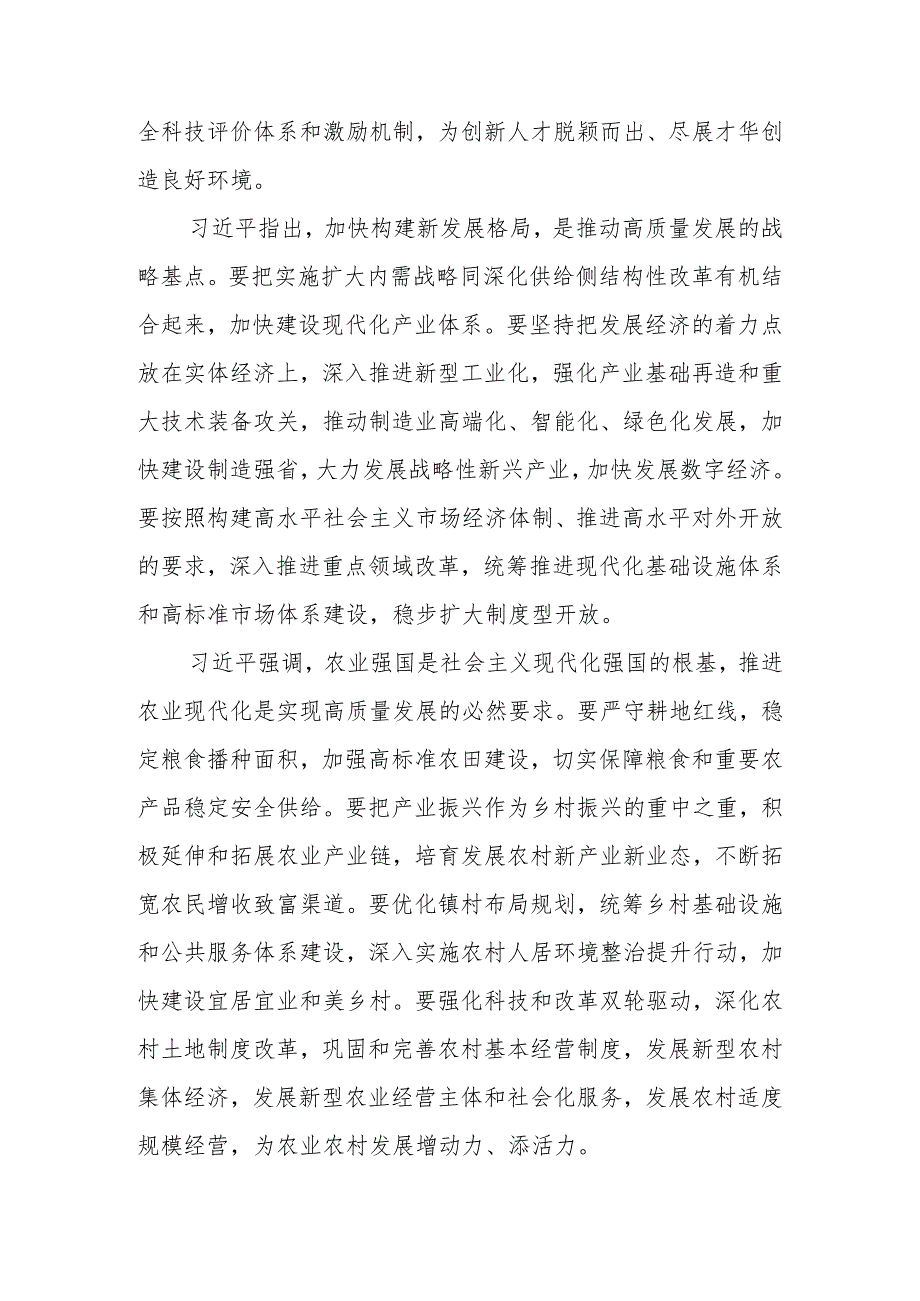 全科技评价体系和激励机制，为创新人才脱颖而出、尽展才华创
造良好环境。
习近平指出，加快构建新发展格局，是推动高质量发展的战
略基点。要把实施扩大内需战略同深化供给侧结构性改革有机结
合起来，加快建设现代化产业体系。要坚持把发展经济的着力点
放在实体经济上，深入推进新型工业化，强化产业基础再造和重
大技术装备攻关，推动制造业高端化、智能化、绿色化发展，加
快建设制造强省，大力发展战略性新兴产业，加快发展数字经济。
要按照构建高水平社会主义市场经济体制、推进高水平对外开放
的要求，深入推进重点领域改革，统筹推进现代化基础设施体系
和高标准市场体系建设，稳步扩大制度型开放。
习近平强调，农业强国是社会主义现代化强国的根基，推进
农业现代化是实现高质量发展的必然要求。要严守耕地红线，稳
定粮食播种面积，加强高标准农田建设，切实保障粮食和重要农
产品稳定安全供给。要把产业振兴作为乡村振兴的重中之重，积
极延伸和拓展农业产业链，培育发展农村新产业新业态，不断拓
宽农民增收致富渠道。要优化镇村布局规划，统筹乡村基础设施
和公共服务体系建设，深入实施农村人居环境整治提升行动，加
快建设宜居宜业和美乡村。要强化科技和改革双轮驱动，深化农
村土地制度改革，巩固和完善农村基本经营制度，发展新型农村
集体经济，发展新型农业经营主体和社会化服务，发展农村适度
规模经营，为农业农村发展增动力、添活力。